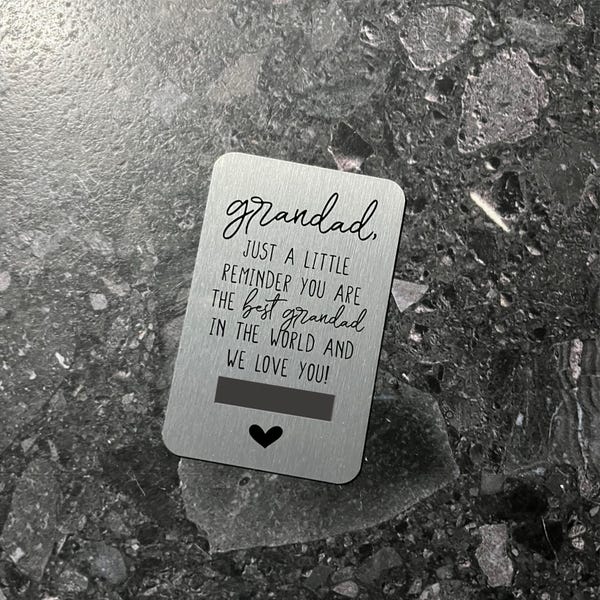 grandad,
JUST A LITTLE
REMINDER YOU ARE
THE best grandad
IN THE WORLD AND
WE LOVE YOU!